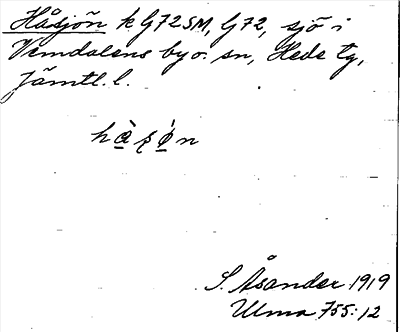 Håsjön k G72SM, G72, sjö i
Vemdalens by o. sn, Hede tg,
Jämtl. l.
S. Åsander 1919
Ulma 755:12